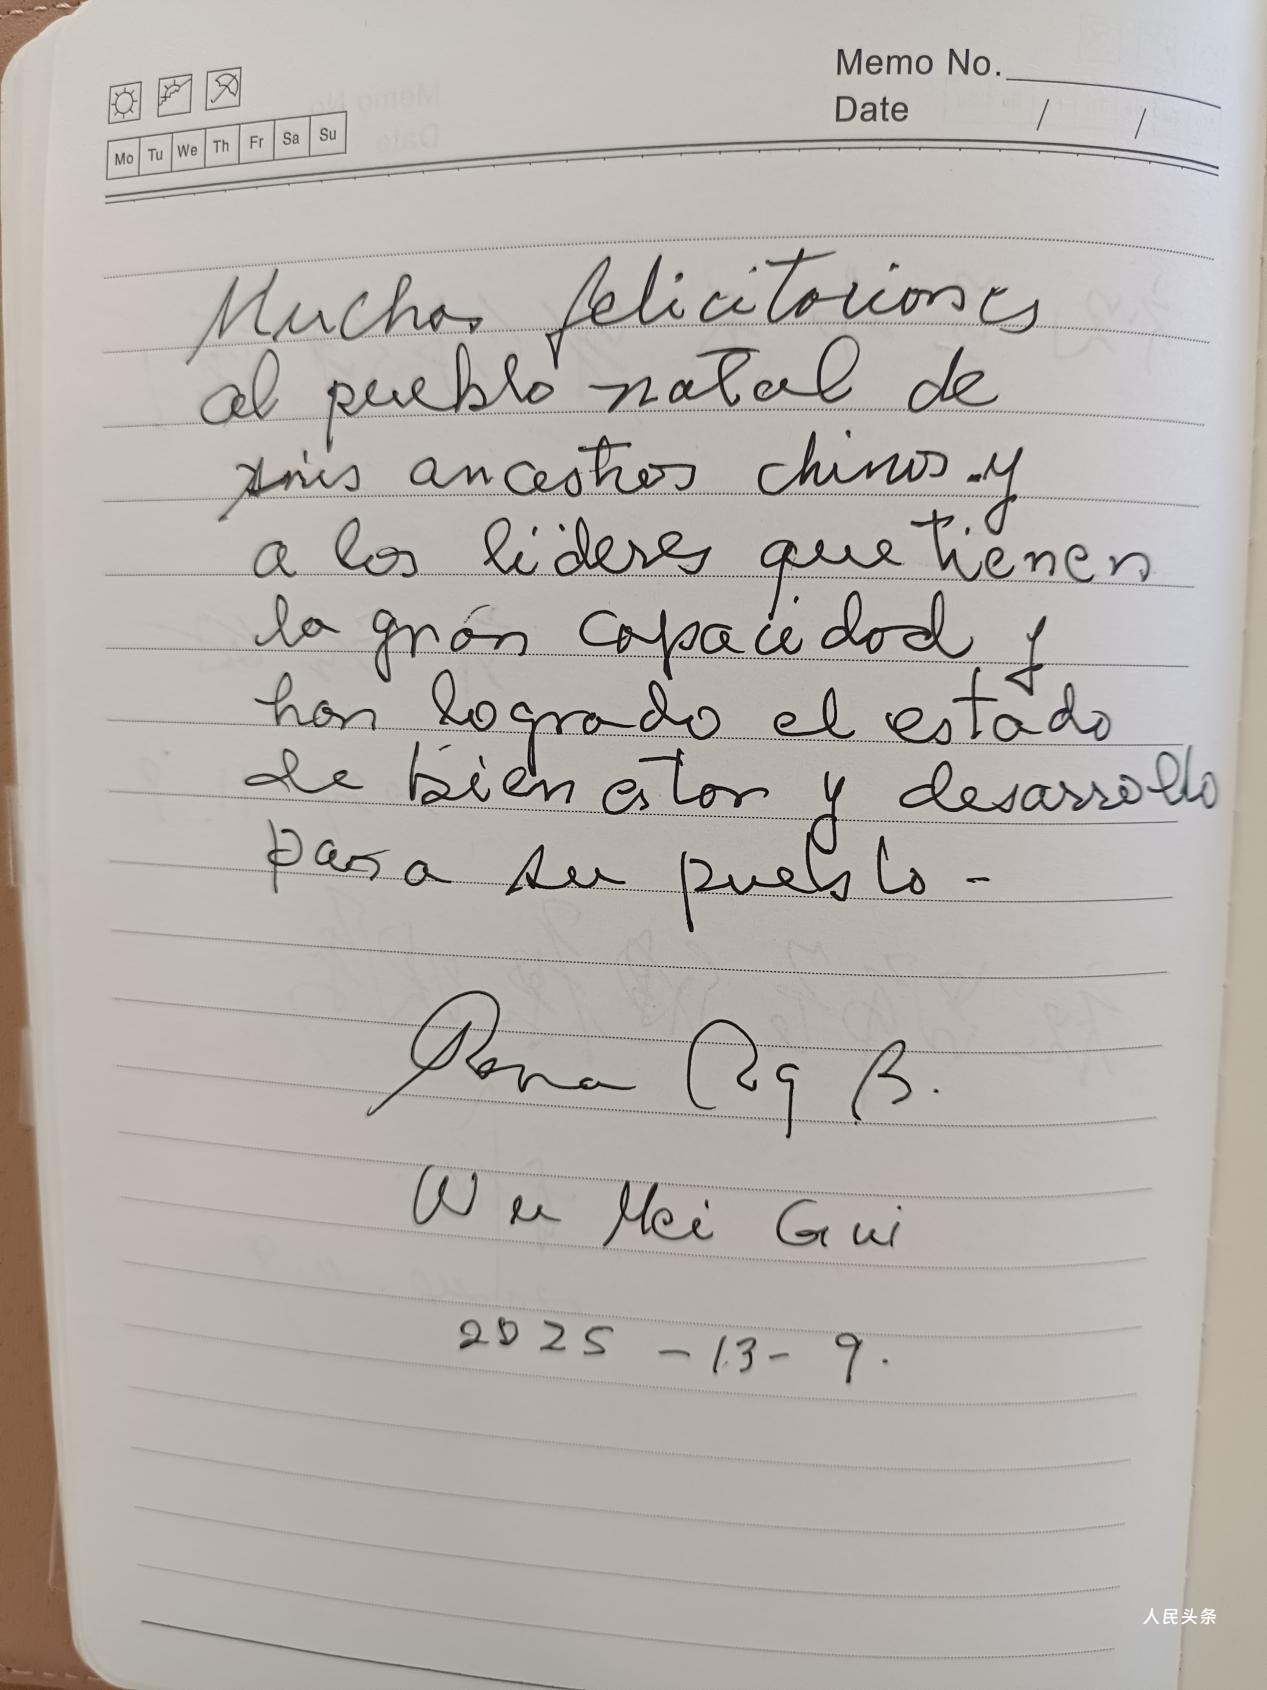 Memo No.
Date / /
Mo Tu We Th Fr Sa Su
Muchas felicitaciones
al pueblo natal de
mis ancestros chinos y
a los lideres que tienen
la grán capacidad y
han logrado el estado
de bien estar y desarrollo
para su pueblo -
B.
Wu Mei Gui
2025 - 13 - 9.
人民头条